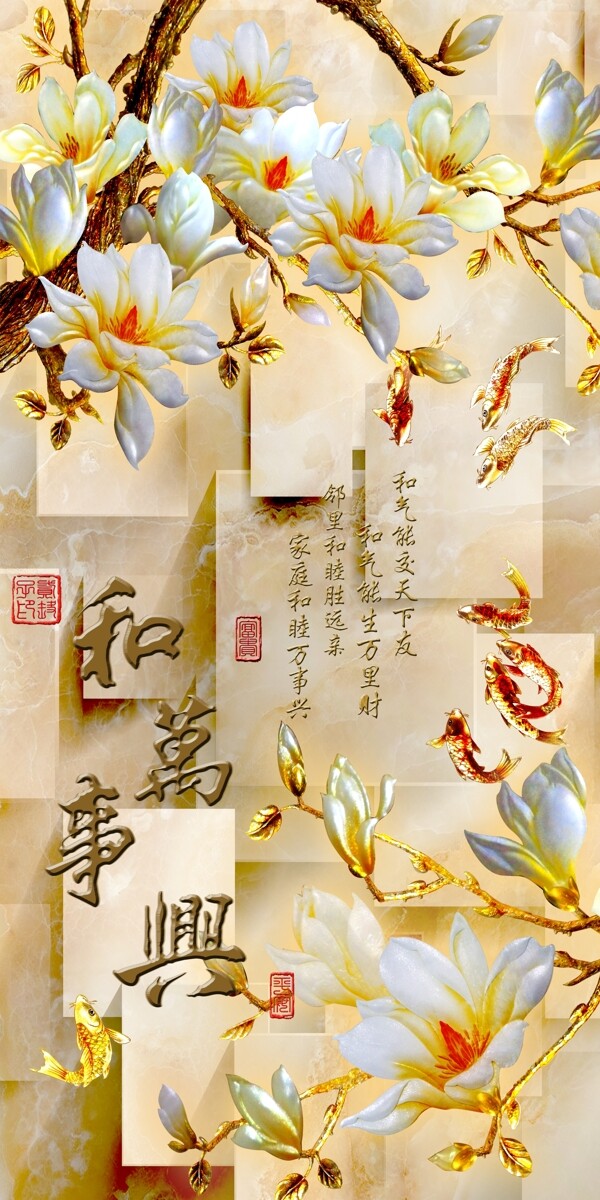 和气能交天下友
和气能生万里财
邻里和睦胜远亲
家庭和睦万事兴
和萬事興
富貴